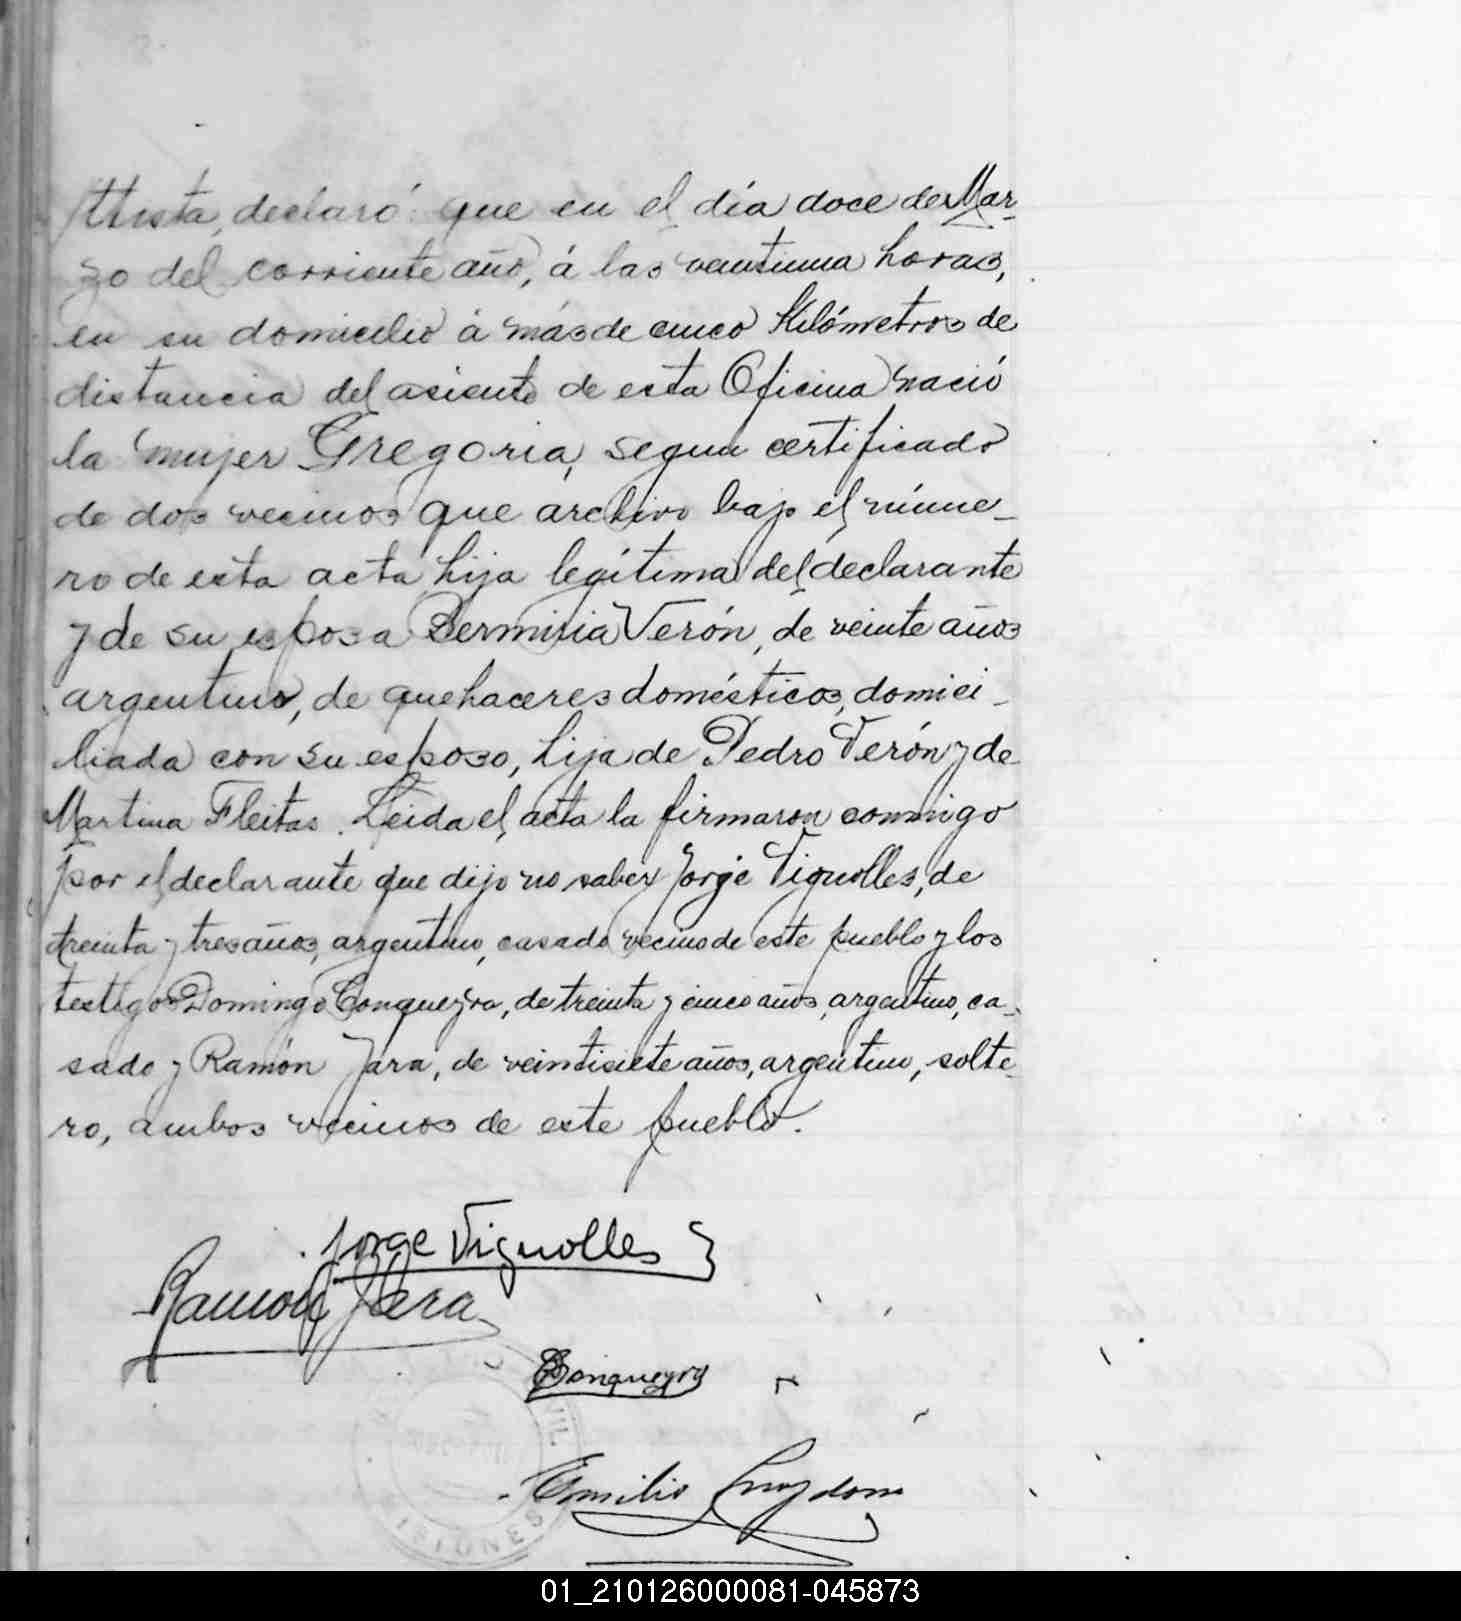 declaró: que en el día doce de Mar-
zo del corriente año, á las veintiuna horas,
en su domicilio á más de cinco Kilómetros de
distancia del asiento de esta Oficina nació
la mujer Gregoria, segun certificado
de dos vecinos que archivo bajo el núme-
ro de esta acta, hija legítima del declarante
y de su esposa Verón, de veinte años
argentino, de quehaceres domésticos, domici-
liada con su esposo, hija de Pedro Verón y de
Martina Fleitas. Leida el acta la firmaron conmigo
por el declarante que dijo no saber Jorge Vignolles, de
treinta y tres años, argentino, casado vecino de este pueblo y los
testigos Domingo Conqueyro, de treinta y cinco años, argentino, ca-
sado y Ramón Jara, de veintisiete años, argentino, solte-
ro, ambos vecinos de este pueblo.
Jorge Vignolles
Ramón Jara
Emilio
01_210126000081-045873